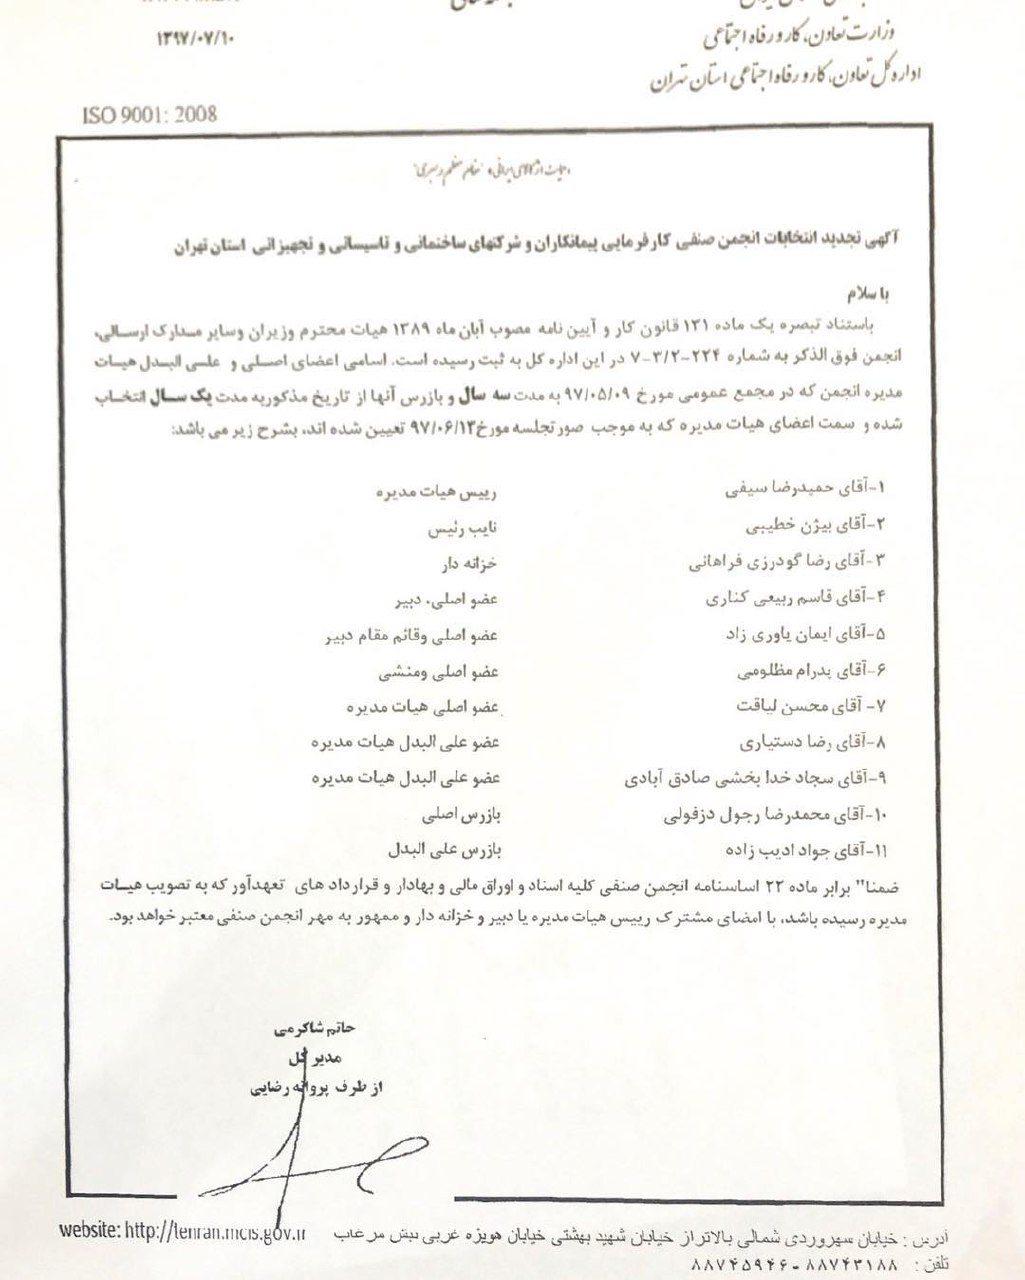 وزارت تعاون، کار و رفاه اجتماعی
۱۳۹۷/۰۷/۱۰
اداره کل تعاون، کار و رفاه اجتماعی استان تهران
ISO 9001: 2008
آگهی تجدید انتخابات انجمن صنفی کارفرمایی پیمانکاران و شرکتهای ساختمانی و تاسیساتی و تجهیزاتی استان تهران
با سلام
باستناد تبصره یک ماده ۱۳۱ قانون کار و آیین نامه مصوب آبان ماه ۱۳۸۹ هیات محترم وزیران وسایر مدارک ارسالی،
انجمن فوق الذکر به شماره ۲۲۴-۳/۲-۷ در این اداره کل به ثبت رسیده است. اسامی اعضای اصلی و علی البدل هیات
مدیره انجمن که در مجمع عمومی مورخ ۹۷/۰۵/۰۹ به مدت سه سال و بازرس آنها از تاریخ مذکوربه مدت یک سال انتخاب
شده و سمت اعضای هیات مدیره که به موجب صورتجلسه مورخ۹۷/۰۶/۱۳ تعیین شده اند، بشرح زیر می باشد:
۱-آقای حمیدرضا سیفی رییس هیات مدیره
۲-آقای بیژن خطیبی نایب رئیس
۳-آقای رضا گودرزی فراهانی خزانه دار
۴-آقای قاسم ربیعی کناری عضو اصلی، دبیر
۵-آقای ایمان یاوری زاد عضو اصلی وقائم مقام دبیر
۶-آقای پدرام مظلومی عضو اصلی ومنشی
۷- آقای محسن لیاقت عضو اصلی هیات مدیره
۸-آقای رضا دستیاری عضو علی البدل هیات مدیره
۹-آقای سجاد خدا بخشی صادق آبادی عضو علی البدل هیات مدیره
۱۰-آقای محمدرضا رجول دزفولی بازرس اصلی
۱۱-آقای جواد ادیب زاده بازرس علی البدل
ضمنا" برابر ماده ۲۲ اساسنامه انجمن صنفی کلیه اسناد و اوراق مالی و بهادار و قرارداد های تعهدآور که به تصویب هیات
مدیره رسیده باشد، با امضای مشترک رییس هیات مدیره یا دبیر و خزانه دار و ممهور به مهر انجمن صنفی معتبر خواهد بود.
حاتم شاکرمی
مدیر کل
از طرف پروانه رضایی
آدرس : خیابان سهروردی شمالی بالاتر از خیابان شهید بهشتی خیابان هویزه غربی نبش مرغاب website: http://tehran.mcls.gov.ir
تلفن : ۸۸۷۴۳۱۸۸ - ۸۸۷۴۵۹۴۶